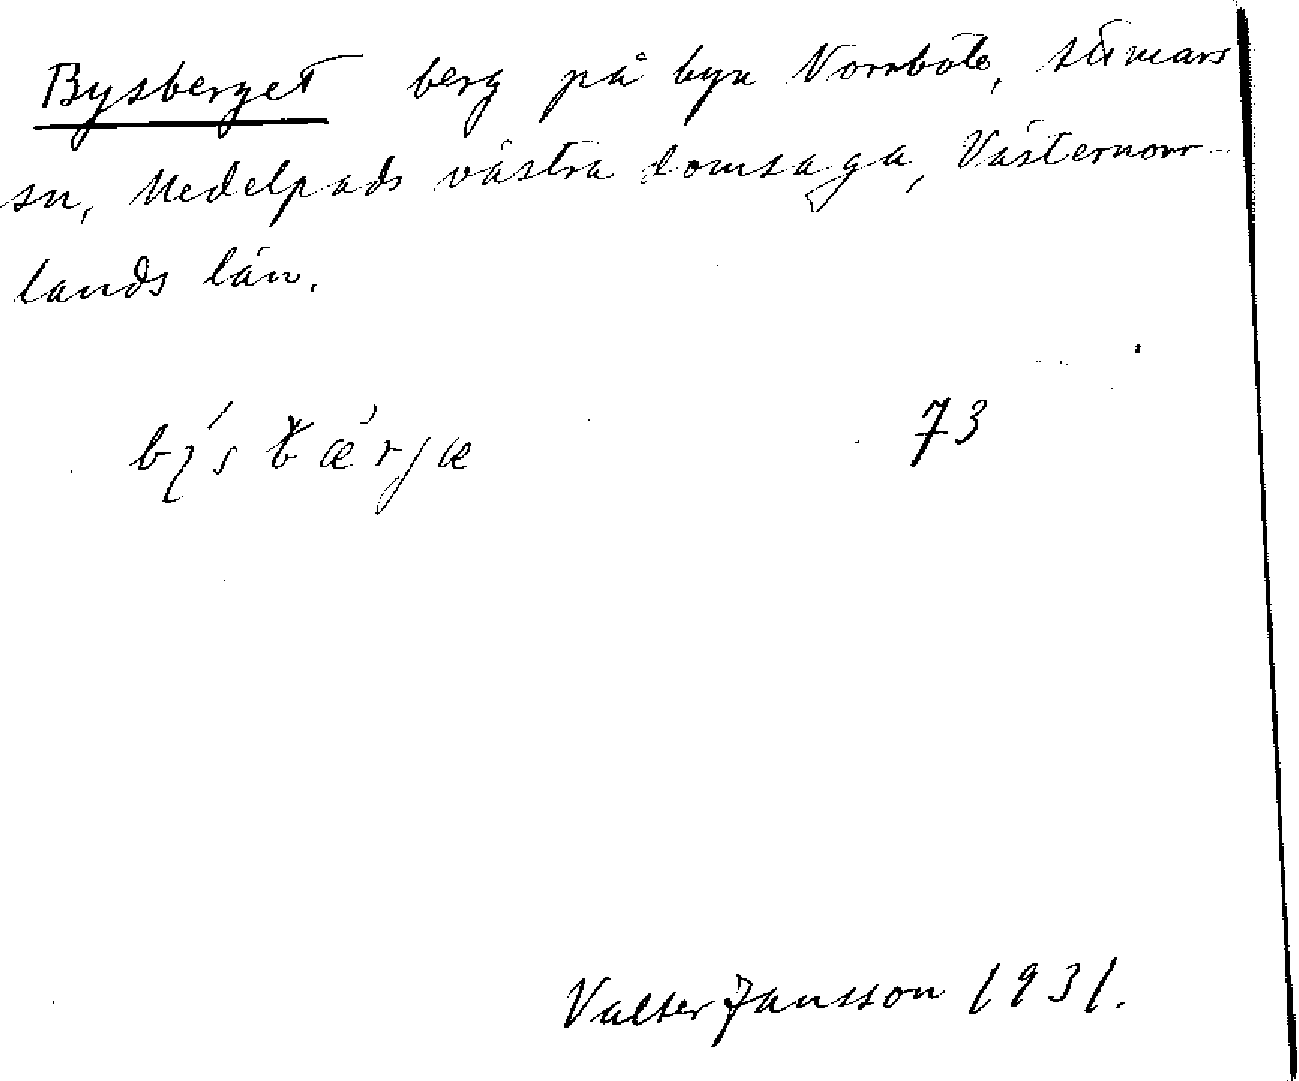 Bysberget berg på byn Norrböle, Stimars
sn, Medelpads västra domsaga, Västernorr-
lands län.
73
Valter Jansson 1931.